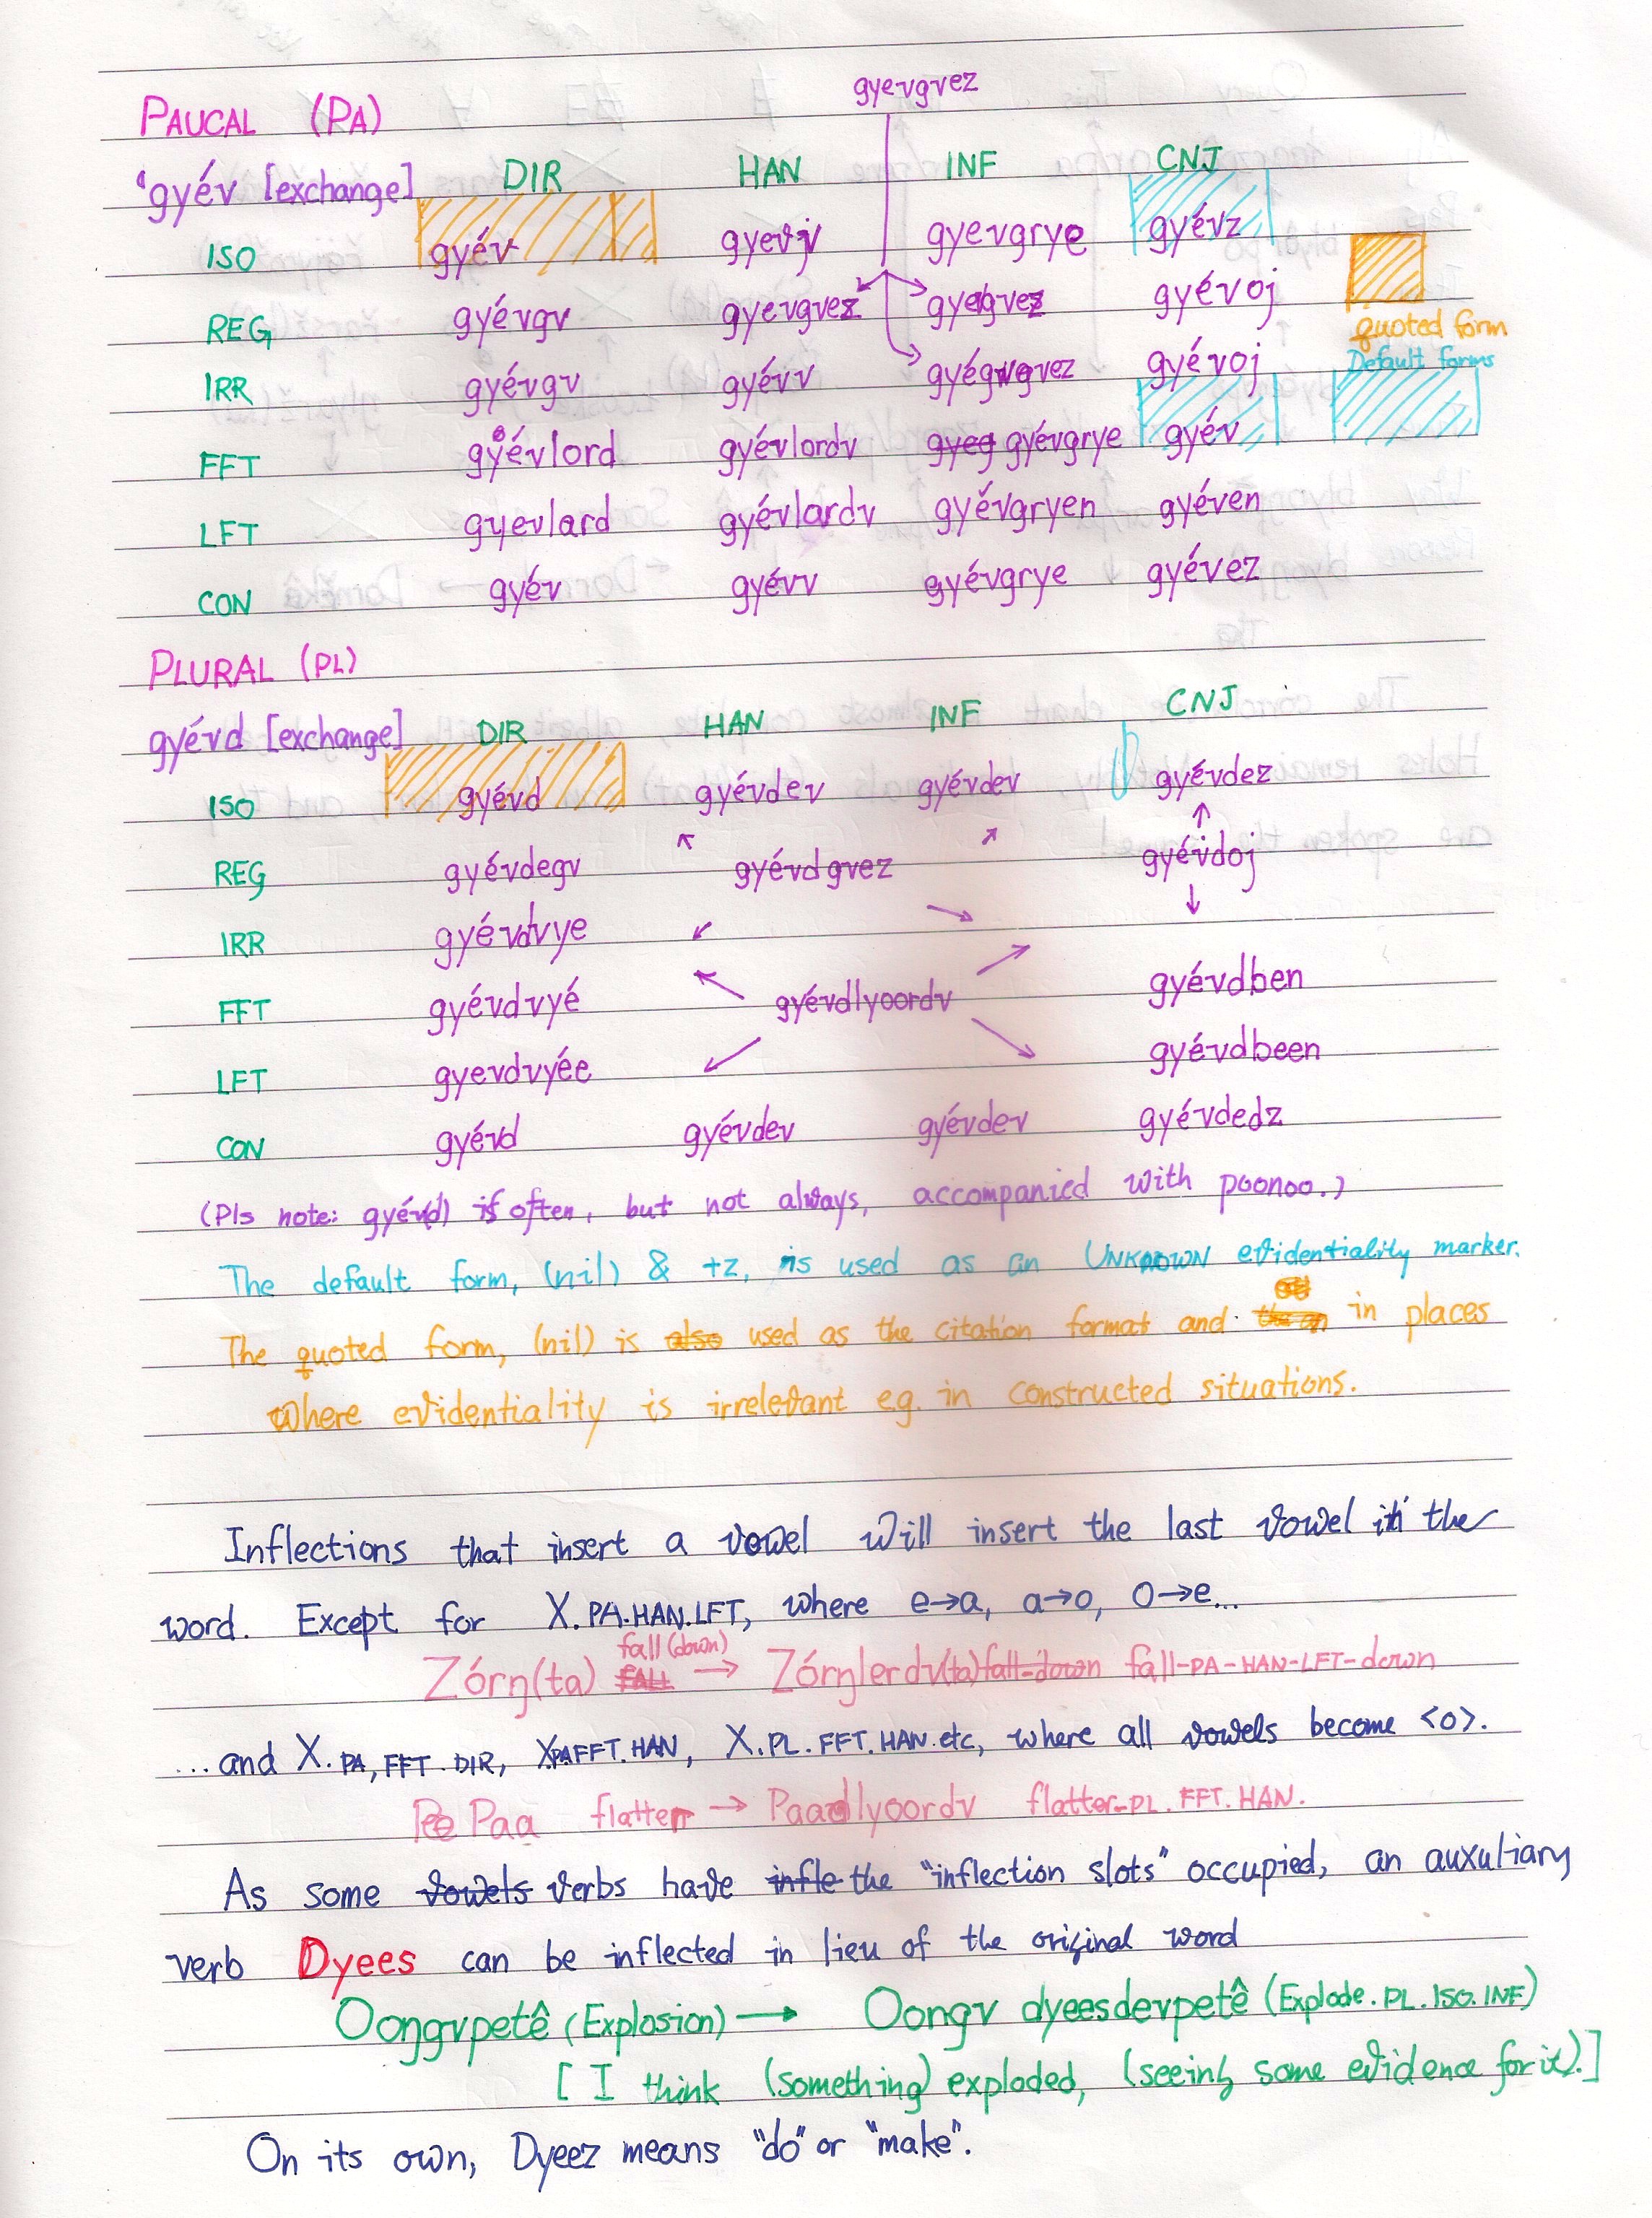 gyevgvez
PAUCAL (PA)
'gyév [exchange] DIR HAN INF CNJ
ISO gyév gyevj gyevgrye gyévz
REG gyévgv gyevgvez gyevgvez gyévoj
quoted form
Default forms
IRR gyévgv gyévv gyévgvez gyévoj
FFT gyévlord gyévlordv gyeg gyévgrye gyév
LFT gyevlard gyévlardv gyévgryen gyéven
CON gyév gyévv gyévgrye gyévez
PLURAL (PL)
gyévd [exchange] DIR HAN INF CNJ
ISO gyévd gyévdev gyévdev gyévdez
REG gyévdegv gyévdgvez gyévdoj
IRR gyévdvye
FFT gyévdvyé gyévdlyoordv gyévdben
LFT gyevdvyée gyévdbeen
CON gyévd gyévdev gyévdev gyévdedz
(Pls note: gyév(d) is often, but not always, accompanied with poonoo.)
The default form, (nil) & +z, is used as an UNKNOWN evidentiality marker.
The quoted form, (nil) is also used as the citation format and in places
where evidentiality is irrelevant e.g. in constructed situations.
Inflections that insert a vowel will insert the last vowel in the
word. Except for X.PA.HAN.LFT, where e→a, a→o, o→e...
fall (down)
Zórŋ(ta) FALL → Zórŋlerdv(ta) fall-down fall-PA-HAN-LFT-down
...and X.PA,FFT.DIR, X.PA.FFT.HAN, X.PL.FFT.HAN.etc, where all vowels become <o>.
Pee Paa flatter → Paadlyoordv flatter-PL.FFT.HAN.
As some vowels verbs have infle the "inflection slots" occupied, an auxuliary
verb Dyees can be inflected in lieu of the original word
Oongvpetê (Explosion) → Oongv dyeesdevpetê (Explode.PL.ISO.INF)
[I think (something) exploded, (seeing some evidence for it).]
On its own, Dyeez means "do" or "make".